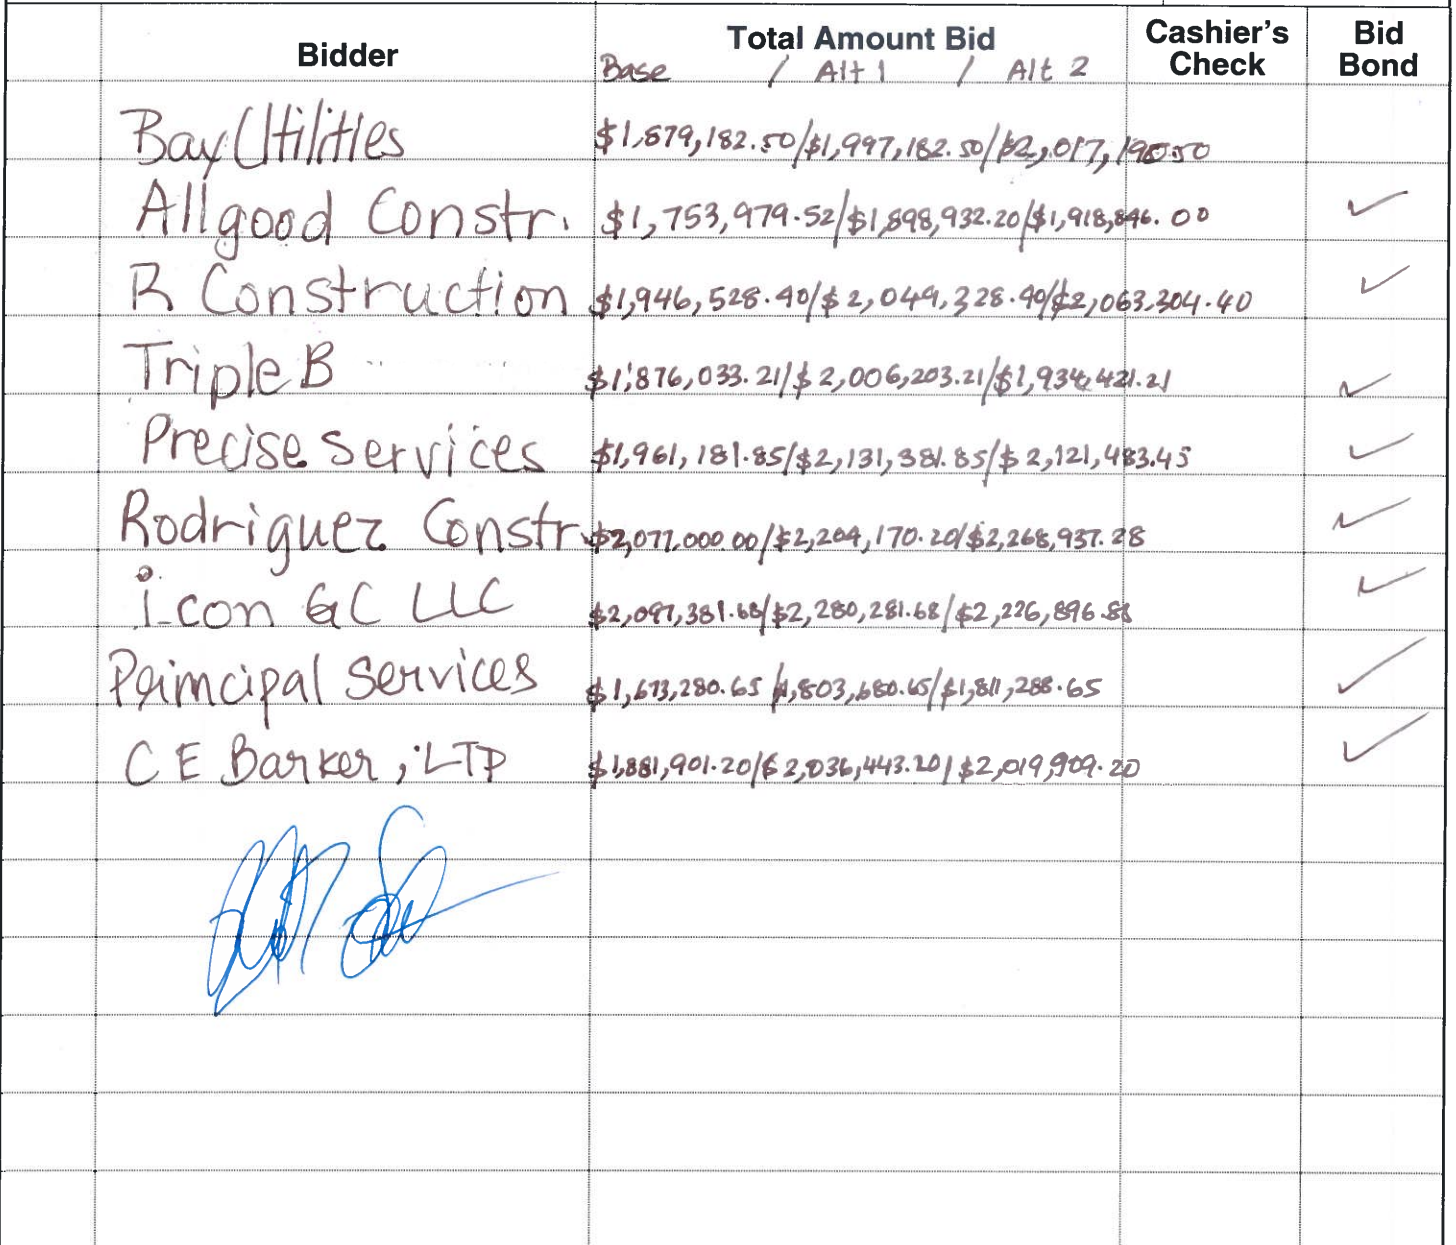 Bidder Total Amount Bid Cashier's Check Bid Bond
Base / Alt 1 / Alt 2
Bay Utilities $1,879,182.50/$1,997,182.50/$2,017,190.50
Allgood Constr. $1,753,979.52/$1,898,932.20/$1,918,846.00 ✓
R Construction $1,946,528.40/$2,049,328.40/$2,063,304.40 ✓
Triple B $1,876,033.21/$2,006,203.21/$1,934,421.21 ✓
Precise Services $1,961,181.85/$2,131,381.85/$2,121,483.45 ✓
Rodriguez Constr. $2,077,000.00/$2,204,170.20/$2,268,937.28 ✓
i-con GC LLC $2,097,381.68/$2,280,281.68/$2,226,896.88 ✓
Principal Services $1,673,280.65/1,803,680.65/$1,811,288.65 ✓
C E Barker, LTP $1,881,901.20/$2,036,443.20/$2,019,909.20 ✓